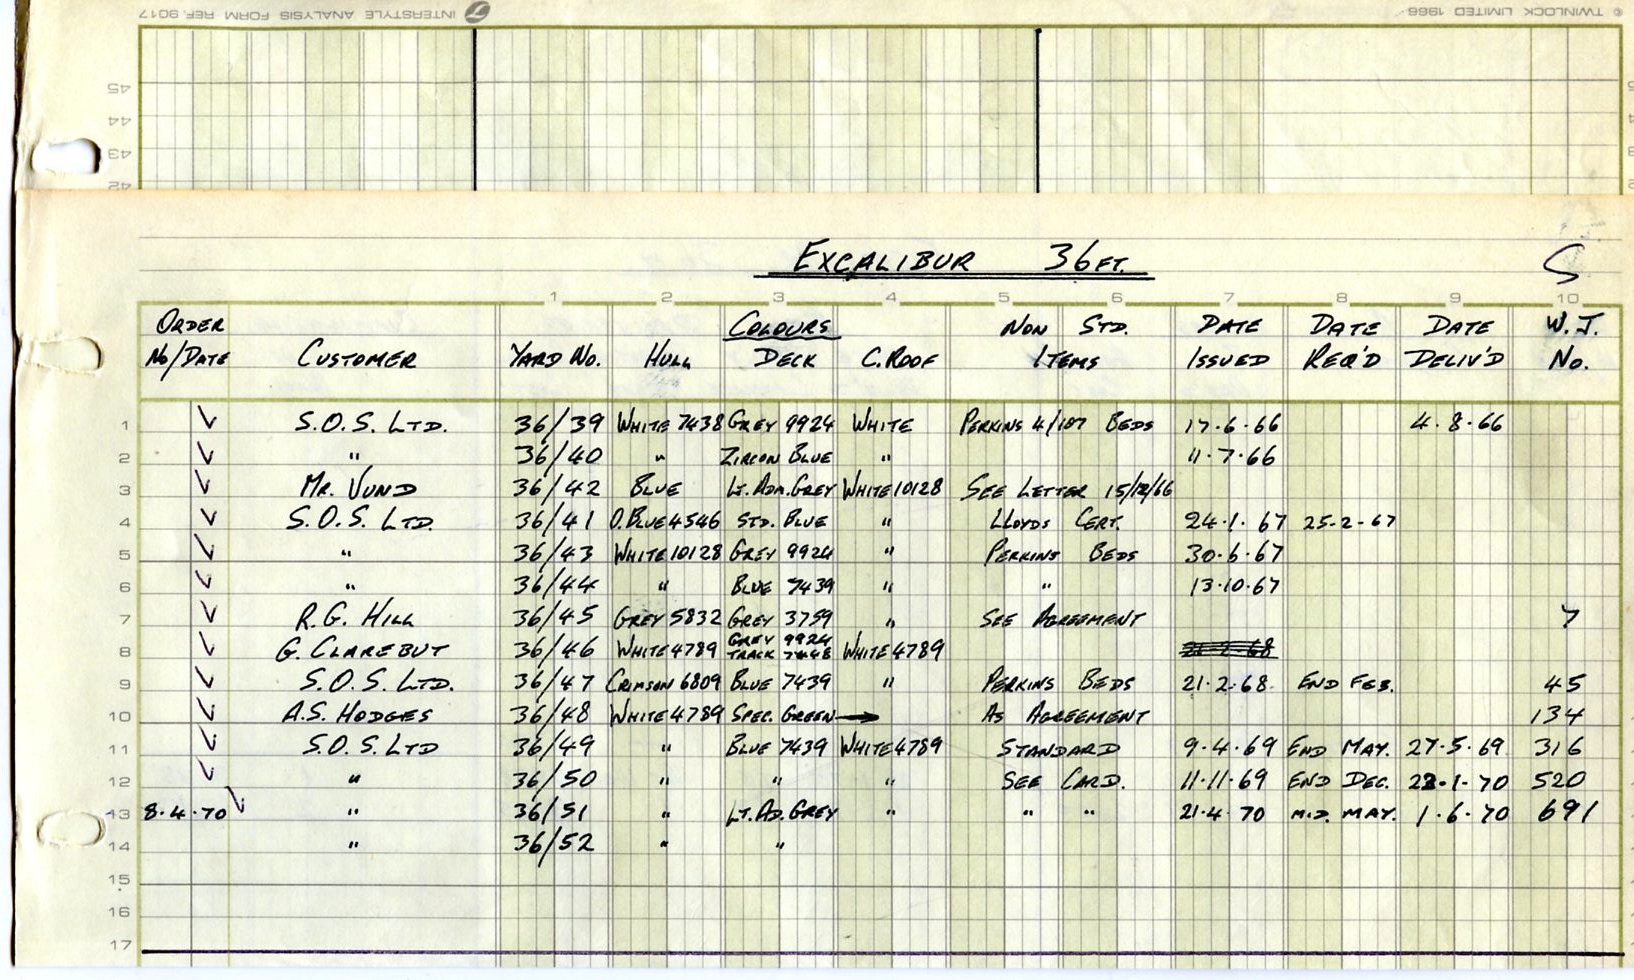 INTERSTYLE ANALYSIS FORM REF. 9017 © TWINLOCK LIMITED 1966
45
44
43
42
EXCALIBUR 36FT. S
1 2 3 4 5 6 7 8 9 10
ORDER COLOURS NON STD. DATE DATE DATE W.J.
NO/DATE CUSTOMER YARD NO. HULL DECK C.ROOF ITEMS ISSUED REQ'D DELIV'D NO.
1 ✓ S.O.S. LTD. 36/39 WHITE 7438 GREY 9924 WHITE PERKINS 4/107 BEDS 17·6·66 4·8·66
2 ✓ " 36/40 " ZIRCON BLUE " 11·7·66
3 ✓ MR. VUND 36/42 BLUE LT. ADM. GREY WHITE 10128 SEE LETTER 15/12/66
4 ✓ S.O.S. LTD. 36/41 O.BLUE 4546 STD. BLUE " LLOYDS CERT. 24·1·67 25-2-67
5 ✓ " 36/43 WHITE 10128 GREY 9924 " PERKINS BEDS 30·6·67
6 ✓ " 36/44 " BLUE 7439 " " 13·10·67
7 ✓ R.G. HILL 36/45 GREY 5832 GREY 3759 " SEE AGREEMENT 7
8 ✓ G. CLAREBUT 36/46 WHITE 4789 GREY 9924 TRACK WHITE 4789
9 ✓ S.O.S. LTD. 36/47 CRIMSON 6809 BLUE 7439 " PERKINS BEDS 21·2·68 END FEB. 45
10 ✓ A.S. HODGES 36/48 WHITE 4789 SPEC. GREEN → AS AGREEMENT 134
11 ✓ S.O.S. LTD 36/49 " BLUE 7439 WHITE 4789 STANDARD 9·4·69 END MAY. 27·5·69 316
12 ✓ " 36/50 " " " SEE CARD. 11·11·69 END DEC. 22·1·70 520
13 8·4·70 ✓ " 36/51 " LT. AD. GREY " " " 21·4·70 MID. MAY. 1·6·70 691
14 " 36/52 " "
15
16
17